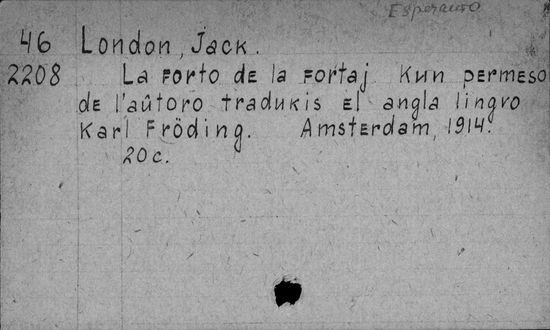 Esperanto
46 London, Jack.
2208 La forto de la fortaj. Kun permeso
de l'aûtoro tradukis el angla lingvo
Karl Fröding. Amsterdam, 1914.
20c.